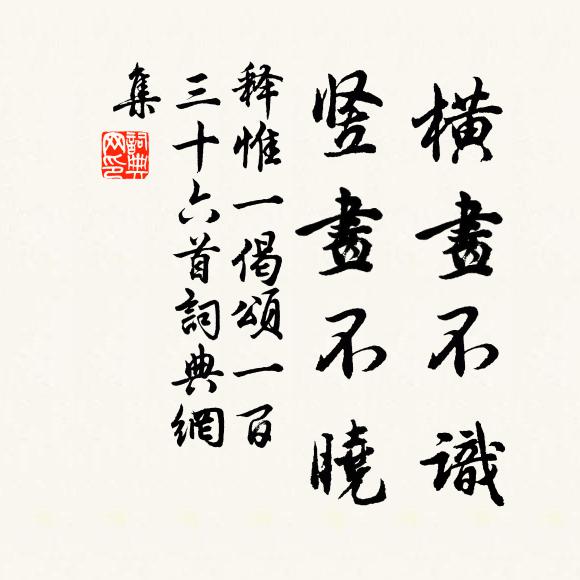 横畫不識
竖畫不曉
释惟一偈頌一百
三十六首詞典網
集
詞典
网印